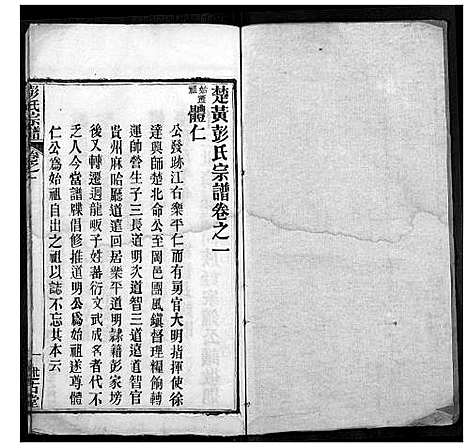 楚黃彭氏宗譜卷之一
始遷祖
體仁
公發跡江右樂平仁而有勇官大明指揮使徐
達興師楚北命公至岡邑團風鎮督理糧餉轉
運師營生子三長道明次道智三道遠道智官
貴州麻哈廳道遠回居樂平道明隸籍彭家塝
後又轉遷迴龍畈子姓蕃衍文武成名者代不
乏人今當譜牒倡修推道明公為始祖遂尊體
仁公為始祖自出之祖以誌不忘其本云
彭氏宗譜
卷之一
一
述古堂